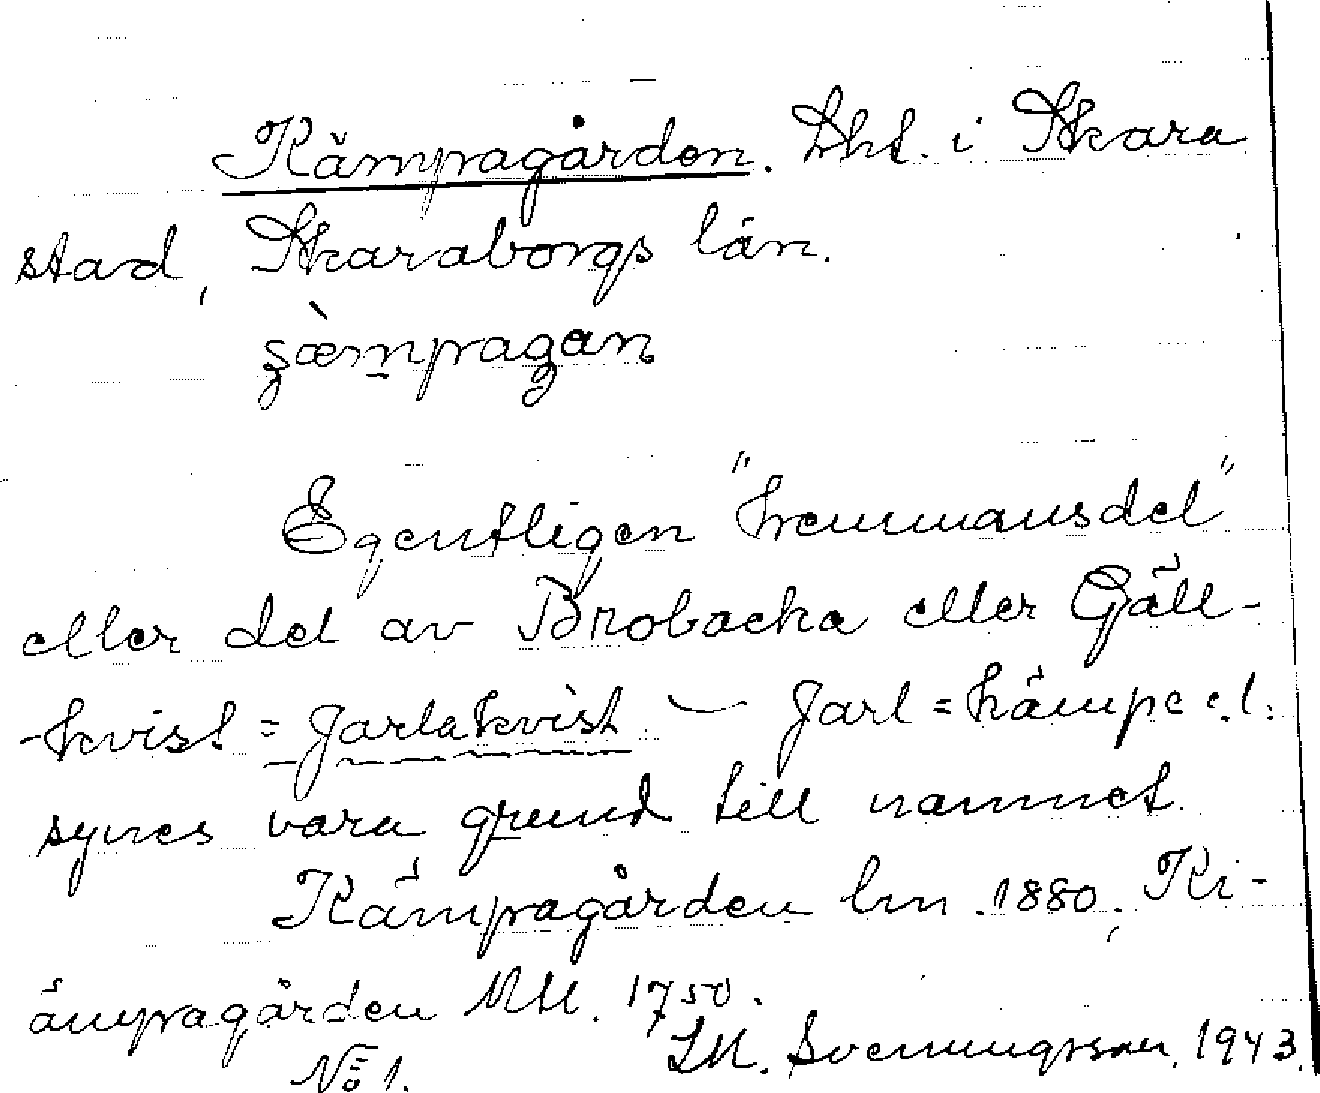 Kämpagården. Lht. i Skara
stad, Skaraborgs län.
Egentligen "hemmansdel"
eller del av Brobacka eller Gäll-
-kvist = Jarlakvist – Jarl = kämpe e.l.
synes vara grund till namnet.
Kämpagården lm. 1880, Ki-
ämpagården MU. 1750.
No 1.
LM. Svenungsson, 1943.